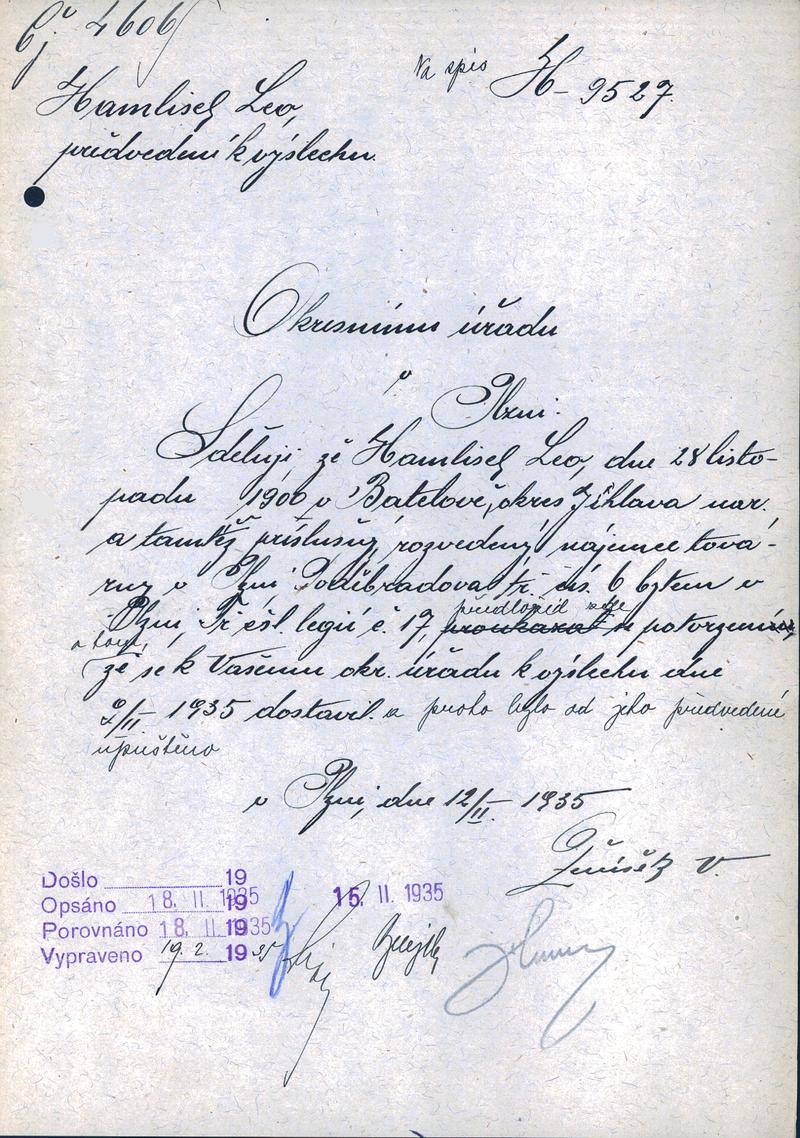 čj 4606/
Na spis H-9527.
Hamlisch Leo,
předvedení k výslechu.
Okresnímu úřadu
v Plzni.
Sděluji, že Hamlisch Leo, dne 28 listo-
padu 1900 v Batelově, okres Jihlava nar.
a tamtéž příslušný, rozvedený, nájemce tová-
rny v Plzni Poděbradova tř. čís. 6 bytem v
předložil zde
Plzni Tř. čsl. legií č. 17, potvrzení
o tom,
že se k Vašemu okr. úřadu k výslechu dne
9/II 1935 dostavil. a proto bylo od jeho předvedení
upuštěno
v Plzni, dne 12/II - 1935
Došlo 19
Opsáno 18. II. 1935
15. II. 1935
Porovnáno 18. II. 1935
Vypraveno 19. 2. 1935